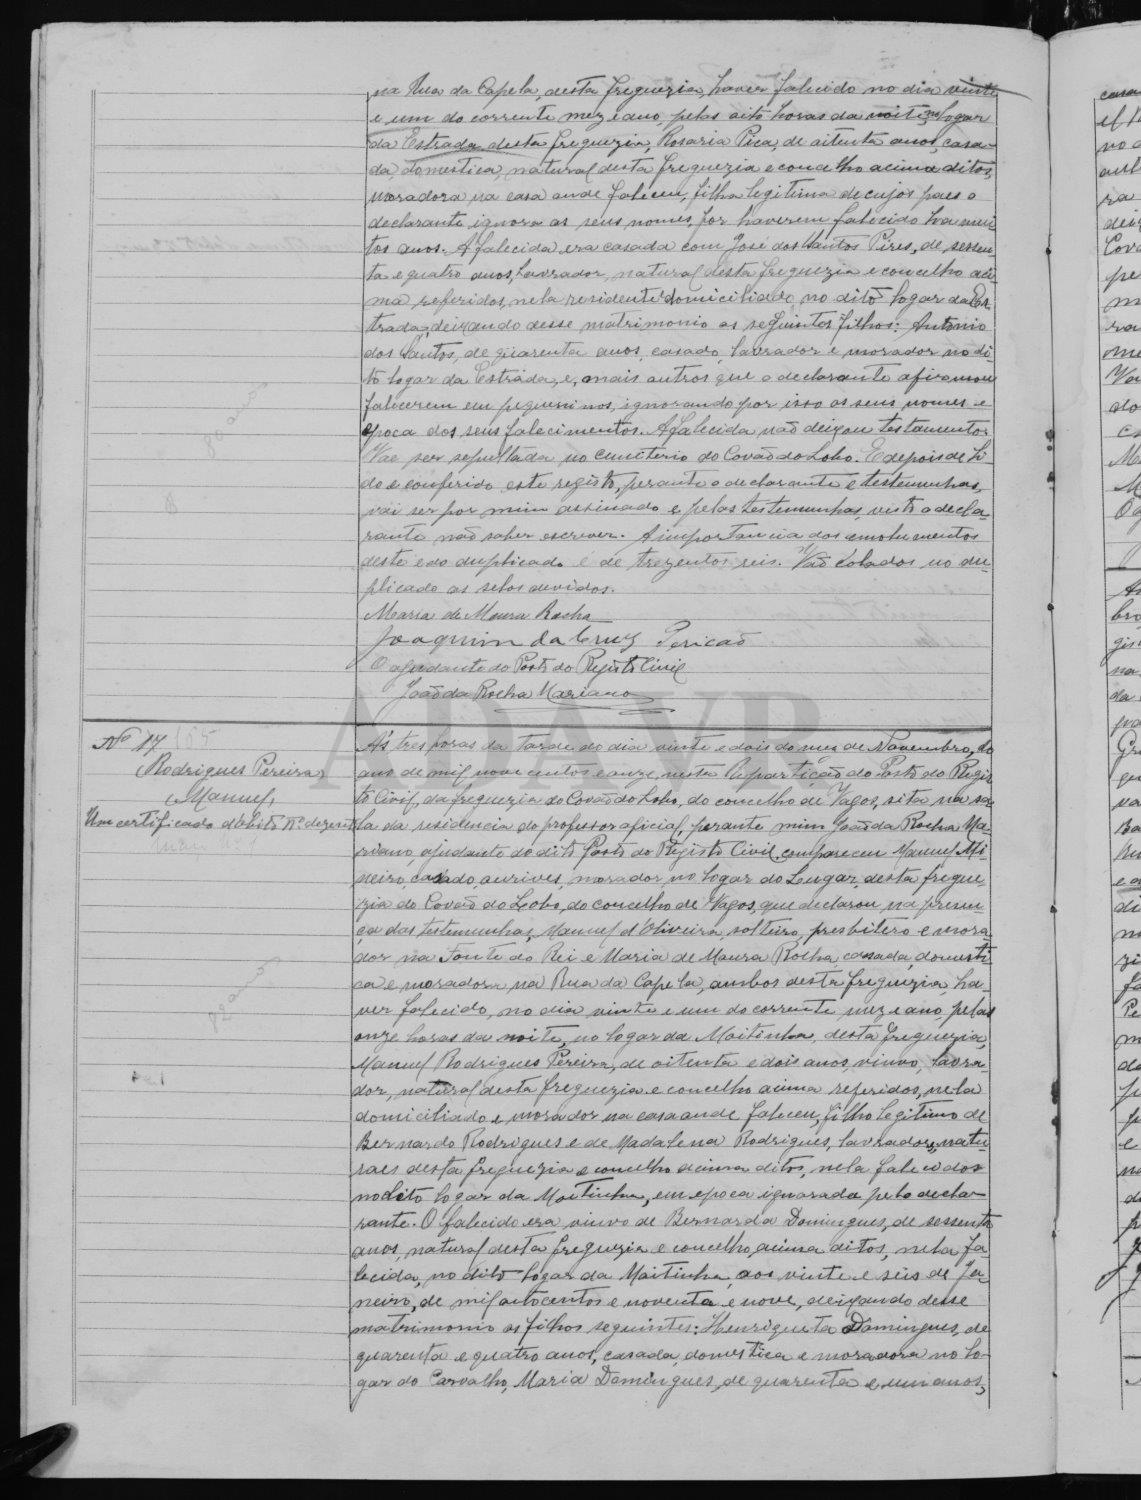 na Rua da Capela, desta freguezia, haver falecido no dia vinte
e um do corrente mez e ano, pelas oito horas da noite, no logar
da Estrada desta freguezia, Rosaria Pica, de oitenta anos, casa-
da, domestica, natural desta freguezia e concelho acima ditos,
moradora na casa onde faleceu, filha legitima de cujos paes o
declarante ignora os seus nomes, por haverem falecido ha mui-
tos anos. A falecida era casada com José dos Santos Pires, de sessen-
ta e quatro anos, lavrador, natural desta freguezia e concelho aci-
ma referidos, nela residente e domiciliado, no dito logar da Es-
trada, deixando desse matrimonio os seguintes filhos: Antonio
dos Santos, de quarenta anos, casado, lavrador e morador no di-
to logar da Estrada, e, mais outros que o declarante afirmou
falecerem em pequeninos, ignorando por isso os seus nomes e
epoca dos seus falecimentos. A falecida não deixou testamento.
Vae ser sepultada no cemeterio do Covão do Lobo. E depois de li-
do e conferido este registo, perante o declarante e testemunhas,
vai ser por mim assinado e pelas testemunhas, visto o decla-
rante não saber escrever. A importancia dos emolumentos
deste e do duplicado é de trezentos reis. Vão colados no du-
plicado os selos devidos.
Maria de Moura Rocha
Joaquim da Cruz Pericão
O ajudante do Posto do Registo Civil
João da Rocha Mariano
Nº 17 105
(Rodrigues Pereira)
Manuel,
Um certificado d'obito Nº dezent
80 anos
82 anos
A's tres horas da tarde do dia vinte e dois do mez de Novembro, do
ano de mil nove centos e onze, nesta Repartição do Posto do Regis-
to Civil, da freguezia do Covão do Lobo, do concelho de Vagos, sita na sa-
la da residencia do professor oficial, perante mim João da Rocha Ma-
riano, ajudante do dito Posto do Registo Civil, compareceu Manuel Mi-
neiro, casado, ourives, morador no logar do Lugar, desta fregue-
zia do Covão do Lobo, do concelho de Vagos, que declarou, na presen-
ça das testemunhas, Manuel d'Oliveira, solteiro, presbitero e mora-
dor na Fonte do Rei e Maria de Moura Rocha, casada, domesti-
ca e moradora na Rua da Capela, ambos desta freguezia, ha-
ver falecido, no dia vinte e um do corrente mez e ano, pelas
onze horas da noite, no logar da Moitinha, desta freguezia,
Manuel Rodrigues Pereira, de oitenta e dois anos, viuvo, lavra-
dor, natural desta freguezia e concelho acima referidos, nela
domiciliado e morador na casa onde faleceu, filho legitimo de
Bernardo Rodrigues e de Madalena Rodrigues, lavradores, natu-
raes desta freguezia e concelho acima ditos, nela falecidos
no dito logar da Moitinha, em epoca ignorada pelo decla-
rante. O falecido era viuvo de Bernarda Domingues, de sessenta
anos, natural desta freguezia e concelho, acima ditos, nela fa-
lecida, no dito logar da Moitinha, aos vinte e seis de Ja-
neiro, de mil oitocentos e noventa e nove, deixando desse
matrimonio os filhos seguintes: Henriqueta Domingues, de
quarenta e quatro anos, casada, domestica e moradora no lo-
gar do Carvalho, Maria Domingues, de quarenta e um anos,
ADAVR